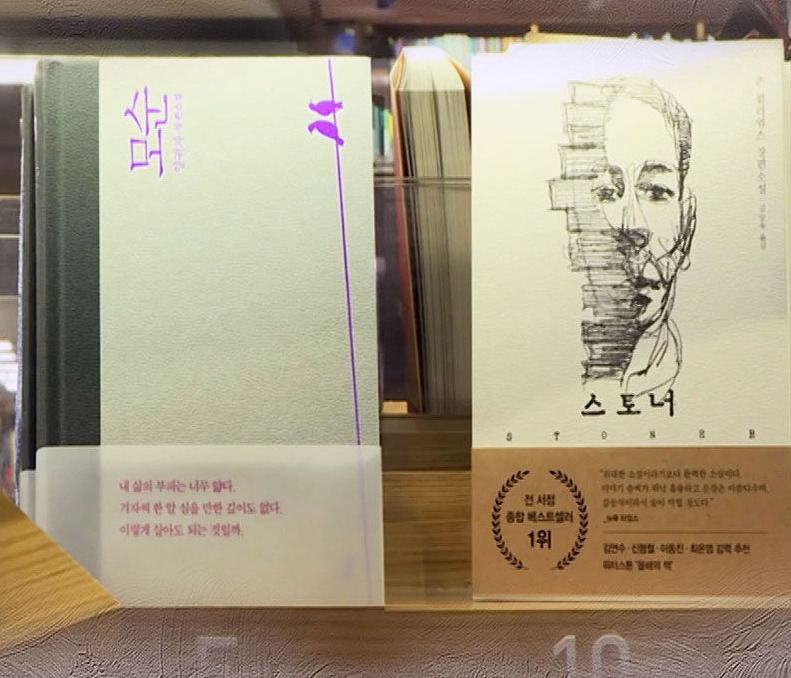 모순
양귀자 장편소설
내 삶의 부피는 너무 얇다.
겨자씨 한 알 심을 만한 깊이도 없다.
이렇게 살아도 되는 것일까.
존 윌리엄스 장편소설
김승욱 옮김
스토너
S T O N E R
전 서점
종합 베스트셀러
1위
"위대한 소설이라기보다 완벽한 소설이다.
이야기 솜씨가 워낙 훌륭하고 문장은 아름다우며,
감동적이라서 숨이 막힐 정도다."
_뉴욕 타임스
김연수·신형철·이동진·최은영 강력 추천
워터스톤 '올해의 책'
10